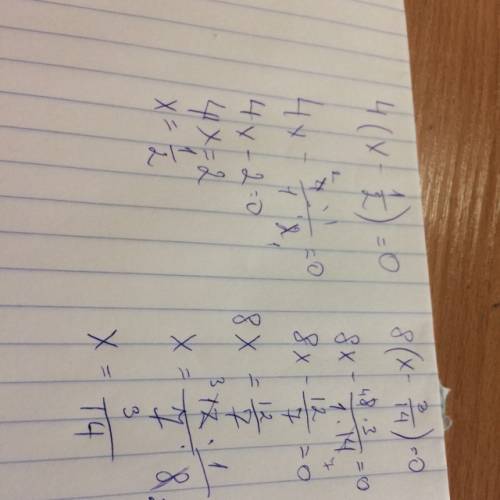 4(x - 1/2) = 0
4x - (4·1)/(1·2) = 0
4x - 2 = 0
4x = 2
x = 1/2
8(x - 3/14) = 0
8x - (8·3)/(1·14) = 0
8x - 12/7 = 0
8x = 12/7
x = (12·1)/(7·8)
x = 3/14